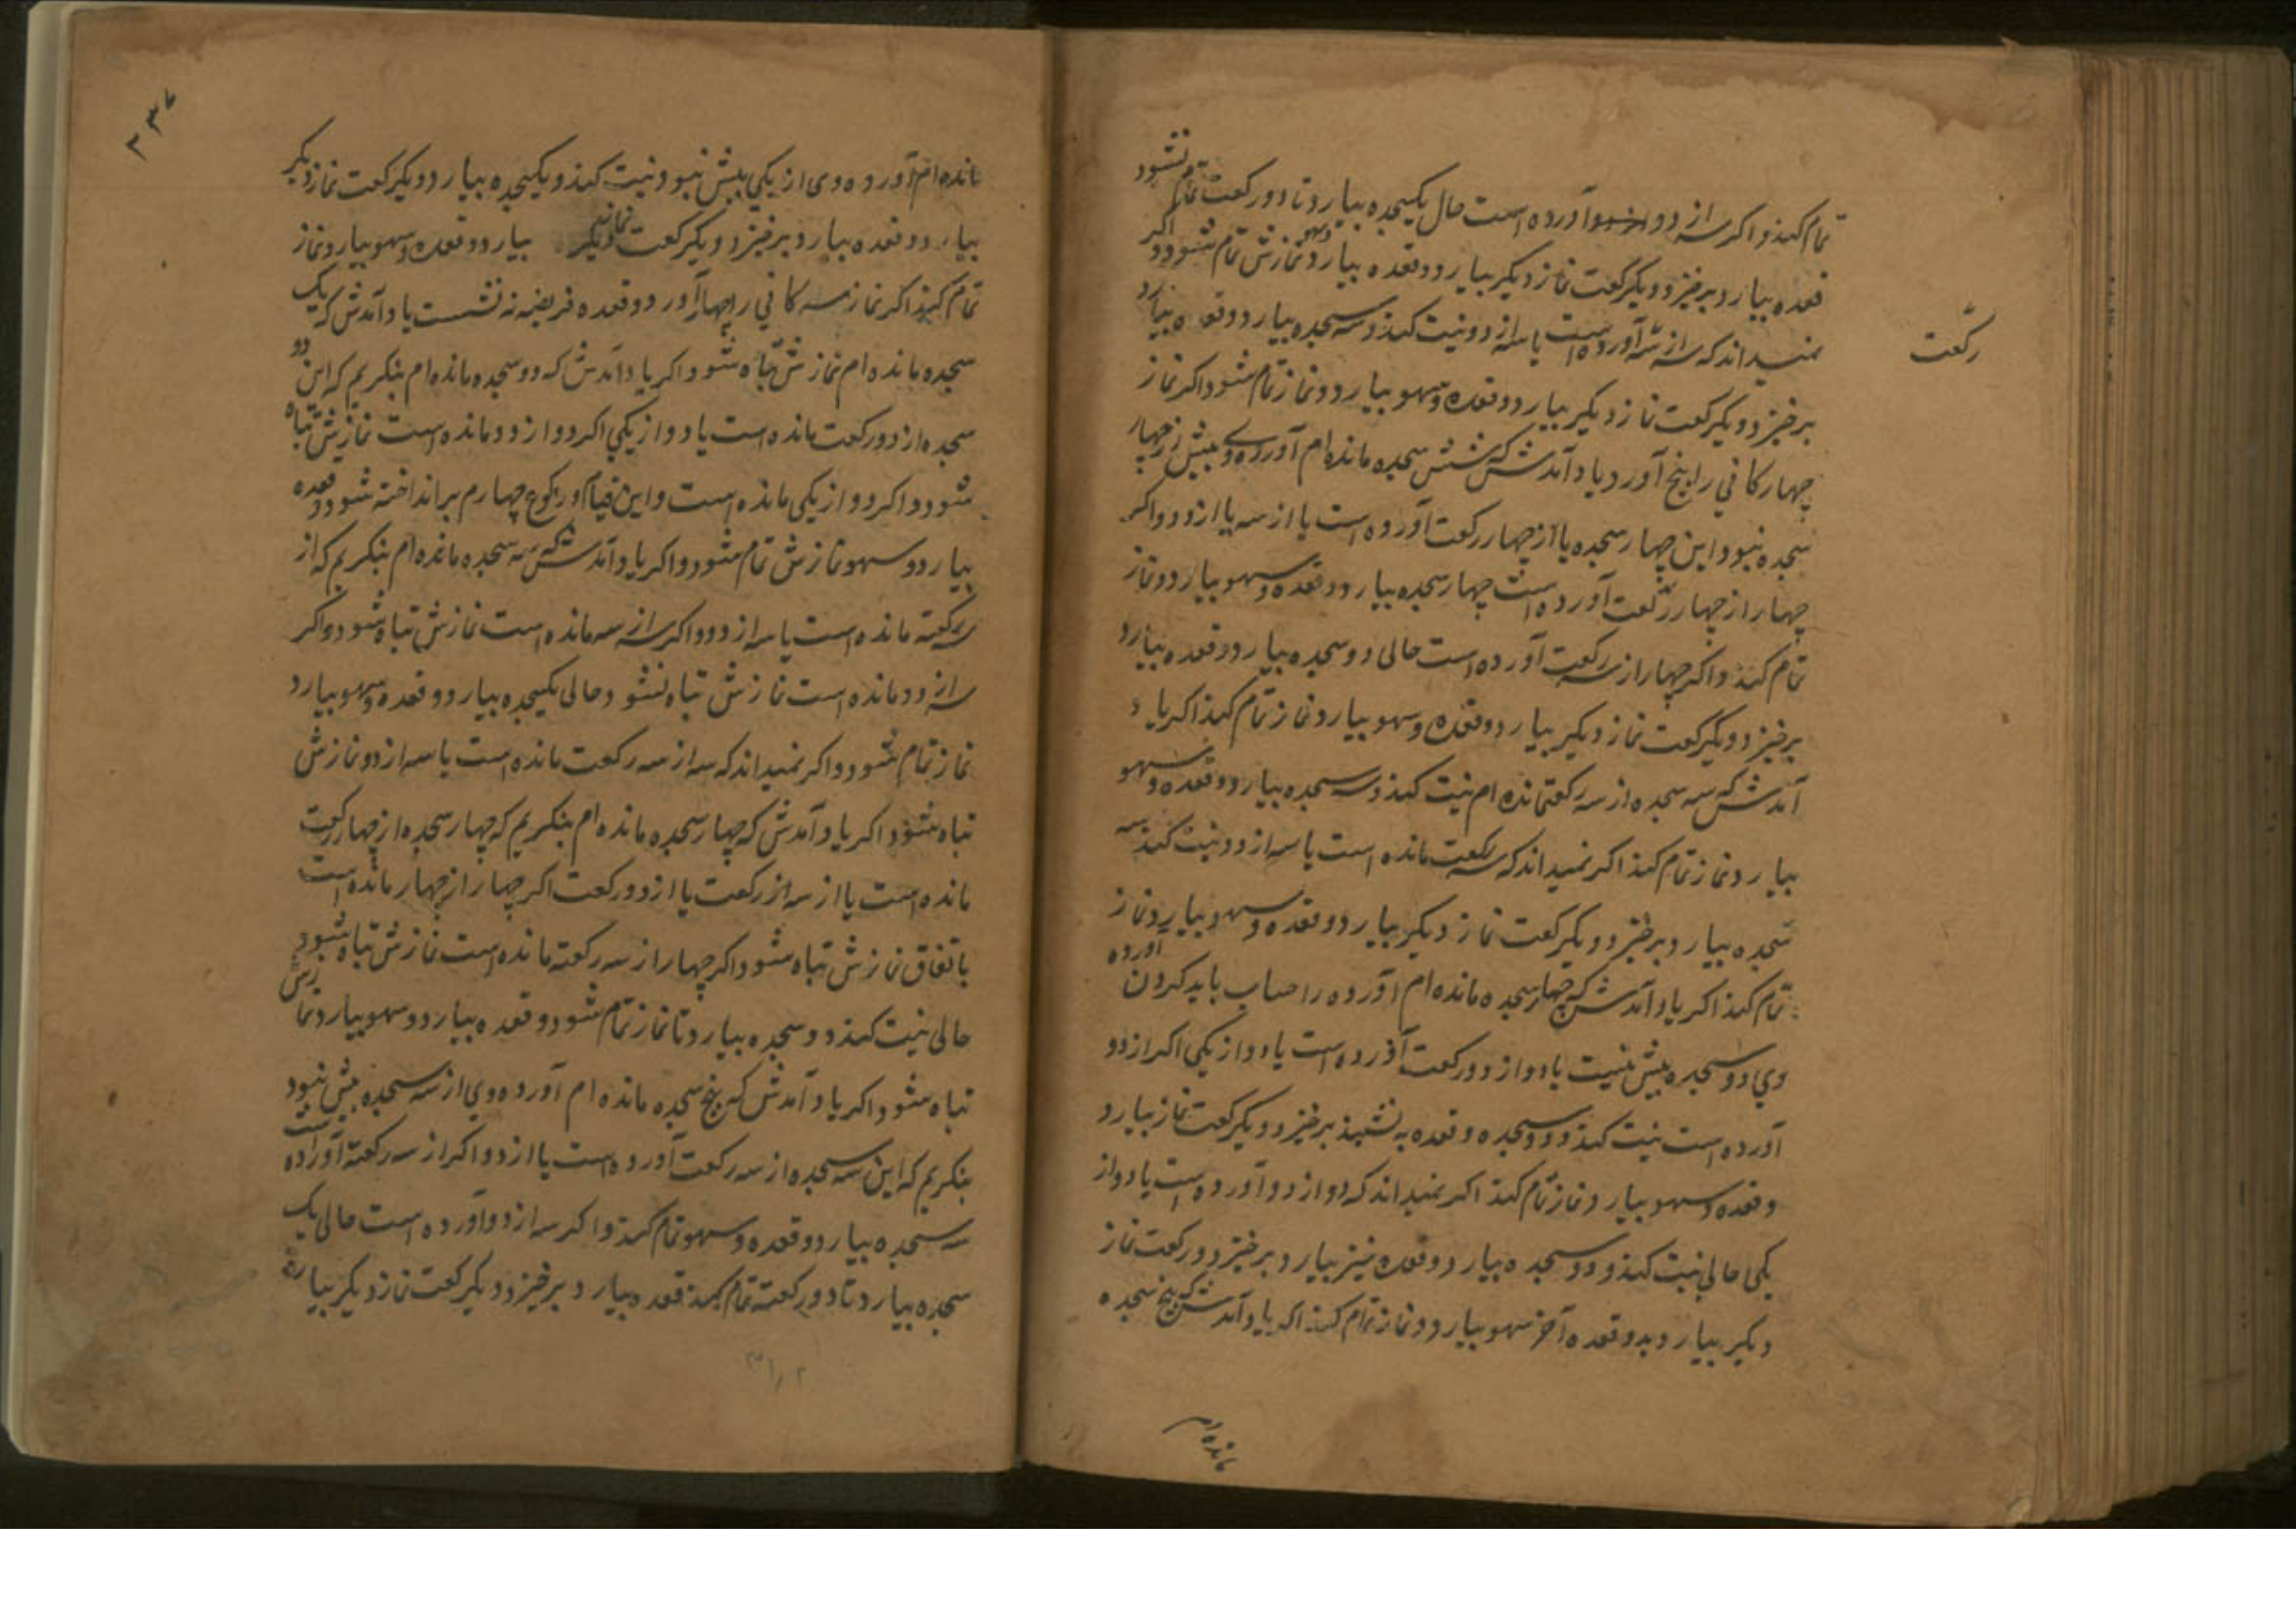 تمام کند و اکر سه از دو آورده است حال یکسجده بیارد تا دو رکعت تمام شود
قعده بیارد برخیزد و یکرکعت نماز دیکر بیارد و قعده بیارد و سهو نمازش تمام شود و اکر
نمیداند که سه از سه آورده است یا سه از دو نیت کند و سه سجده بیارد و قعده بیارد
رکعت
برخیزد و یکرکعت نماز دیکر بیارد و قعده و سهو بیارد و نماز تمام شود اکر نماز
چهارکانی را پنج آورد یاد آمدش که شش سجده مانده ام آورده وی بیش از چهار
سجده نبود این چهار سجده یا از چهار رکعت آورده است یا از سه یا از دو و اکر
چهار از چهار رکعت آورده است چهار سجده بیارد و قعده و سهو بیارد و نماز
تمام کند و اکر چهار از سه رکعت آورده است حالی دو سجده بیارد و قعده بیارد
برخیزد و یکرکعت نماز دیکر بیارد و قعده و سهو بیارد و نماز تمام کند اکر یاد
آمدش که سه سجده از سه رکعت مانده ام نیت کند و سه سجده بیارد و قعده و سهو
بیارد و نماز تمام کند اکر نمیداند که سه رکعت مانده است یا سه از دو نیت کند سه
سجده بیارد و برخیزد و یکرکعت نماز دیکر بیارد و قعده و سهو بیارد و نماز
تمام کند اکر یاد آمدش که چهار سجده مانده ام آورده را حساب باید کردن آورده
وی دو سجده بیش نیست یا دو از دو رکعت آورده است یا دو از یکی اکر از دو
آورده است نیت کند و دو سجده و قعده به نشیند برخیزد و یکرکعت نماز بیارد
و قعده و سهو بیارد و نماز تمام کند اکر نمیداند که دو از دو آورده است یا دو از
یکی حالی نیت کند و دو سجده بیارد و قعده نیز بیارد و برخیزد دو رکعت نماز
دیکر بیارد بدو قعده آخر سهو بیارد و نماز تمام کند اکر یاد آمدش که پنج سجده
مانده ام
۳۳۷
مانده ام آورده وی از یکی بیش نبود نیت کند و یکسجده بیارد و یکرکعت نماز دیکر
بیارد و قعده بیارد برخیزد و یکرکعت نماز دیکر بیارد و قعده و سهو بیارد و نماز
تمام کند اکر نماز سه کانی را چهار آورد و قعده فریضه نه نشست یاد آمدش که یک
سجده مانده ام نمازش تباه شود اکر یاد آمدش که دو سجده مانده ام بنکریم که این دو
سجده از دو رکعت مانده است یا دو از یکی اکر دو از دو مانده است نمازش تباه
شود و اکر دو از یکی مانده است و این قیام و رکوع چهارم برانداخته شود و قعده
بیارد و سهو نمازش تمام شود و اکر یاد آمدش که سه سجده مانده ام بنکریم که از
سه رکعته مانده است یا سه از دو و اکر سه از سه مانده است نمازش تباه شود و اکر
سه از دو مانده است نمازش تباه نشود و حالی یکسجده بیارد و قعده و سهو بیارد
نماز تمام شود و اکر نمیداند که سه از سه رکعت مانده است یا سه از دو نمازش
تباه شود اکر یاد آمدش که چهار سجده مانده ام بنکریم که چهار سجده از چهار رکعت
مانده است یا از سه از رکعت یا از دو رکعت اکر چهار از چهار مانده است
باتفاق نمازش تباه شود اکر چهار از سه رکعته مانده است نمازش تباه شود
حالی نیت کند دو سجده بیارد تا نماز تمام شود و قعده بیارد و سهو بیارد نمازش
تباه شود اکر یاد آمدش که پنج سجده مانده ام آورده وی از سه سجده بیش نبود
بنکریم که این سه سجده از سه رکعت آورده است یا از دو اکر از سه رکعته آورده است
سه سجده بیارد و قعده و سهو تمام کند و اکر سه از دو آورده است حالی یک
سجده بیارد تا دو رکعته تمام کند قعده بیارد و برخیزد و یکرکعت نماز دیکر بیارد